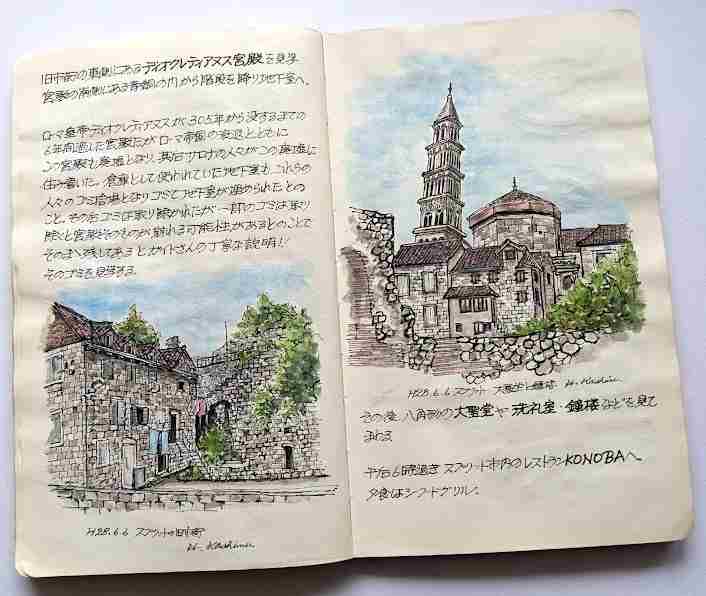 旧市街の東側にあるディオクレティアヌス宮殿を見学
宮殿の南側にある青銅の門から階段を降り地下室へ。
ローマ皇帝ディオクレティアヌスが305年から没するまでの
6年間過した宮殿だがローマ帝国の衰退とともに
この宮殿も廃墟となり、其后サロナの人々がこの廃墟に
住み着いた。倉庫として使われていた地下室もこれらの
人々のゴミ捨場となりゴミで地下室が埋められたとの
こと。その后ゴミは取り除かれたが一部のゴミは取り
除くと宮殿そのものが崩れる可能性があるとのことで
そのまゝ残してあるとガイドさんの丁寧な説明!!
そのゴミを見学する。
H28.6.6 スプリットの旧市街
H28.6.6 スプリット 大聖堂と鐘楼
その後、八角形の大聖堂や洗礼室・鐘楼などを見て
まわる
午后6時過ぎスプリット市内のレストランKONOBAへ。
夕食はシーフードグリル。